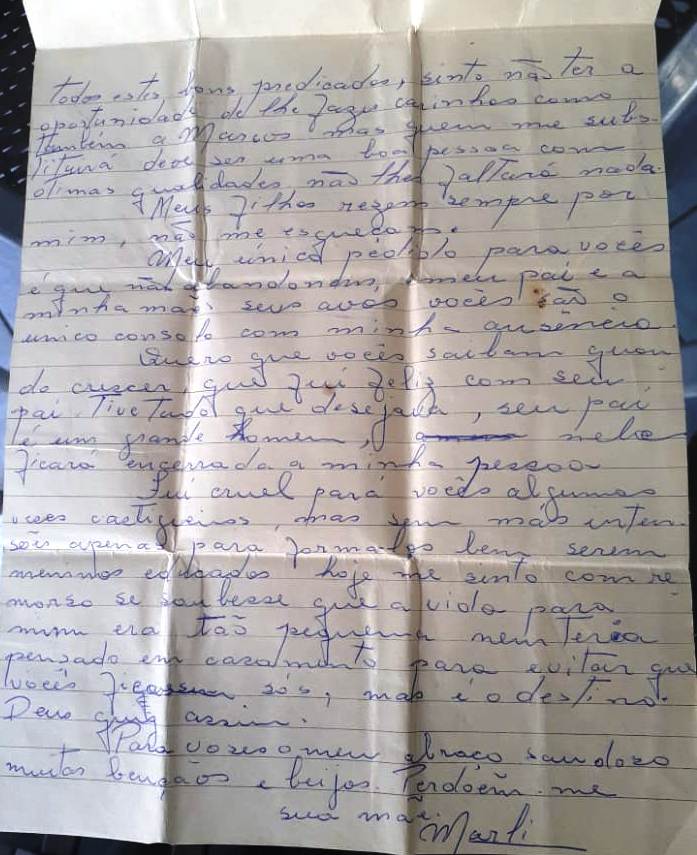 todos estes bons predicados, sinto não ter a
oportunidade de lhe fazer carinhos como
também a Marcos mas quem me subs-
tituirá deve ser uma boa pessoa com
ótimas qualidades não lhes faltará nada.
Meus filhos rezem sempre por
mim, não me esqueçam.
Meu único pedido para vocês
é que não abandones, meu pai e a
minha mãe seus avos vocês são o
unico consolo com minha ausência.
Quero que vocês saibam quan
do crescer, que fui feliz com seu
pai. Tive tudo que desejava, seu pai
é um grande homem, nele
ficará encerrada a minha pessoa
Fui cruel para vocês algumas
vezes castiguei-os, mas sem más inten
sões apenas para formalos bem serem
meninos educados hoje me sinto com re
morso se soubesse que a vida para
mim era tão pequena nem teria
pensado em casamento para evitar que
vocês ficassem sós, mas é o destino.
Deus quiz assim.
Para vocês o meu abraço saudoso
muitas bençãos e beijos. Perdoêm-me
sua mãe.
Marli